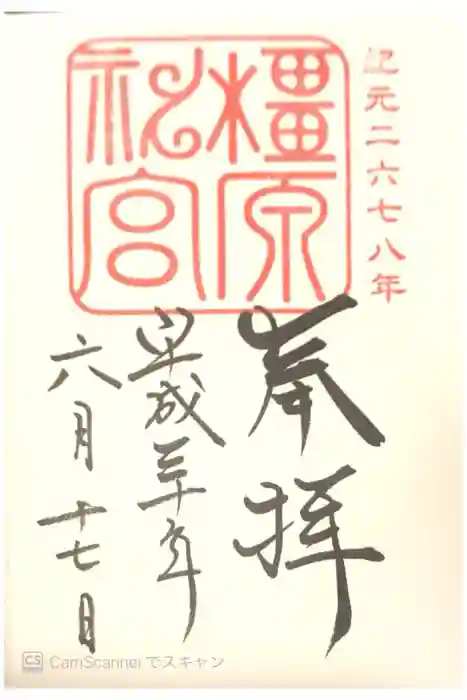 紀元二六七八年
橿原
神宮
奉拝
平成三十年
六月十七日
CS CamScanner でスキャン